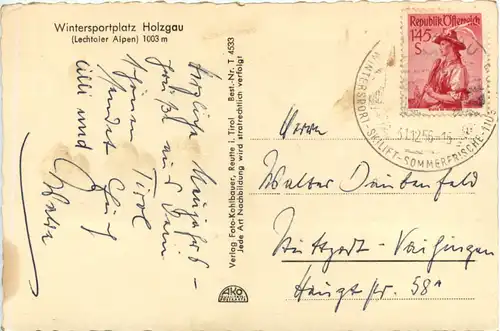 Wintersportplatz Holzgau
(Lechtaler Alpen) 1003 m
Herzliche Neujahrs-
grüße aus dem
schönen Tirol
sendet Euch
Lilli und
Verlag Foto-Kohlbauer, Reutte i. Tirol Best.-Nr. T 4533
Jede Art Nachbildung wird strafrechtlich verfolgt
AKO
Republik Österreich
1·45
S
WINTERSPORT-SKILIFT-SOMMERFRISCHE
31.12.56-15
Herrn
Walter Daubenfeld
Stuttgart-Vaihingen
Haupt str. 58A